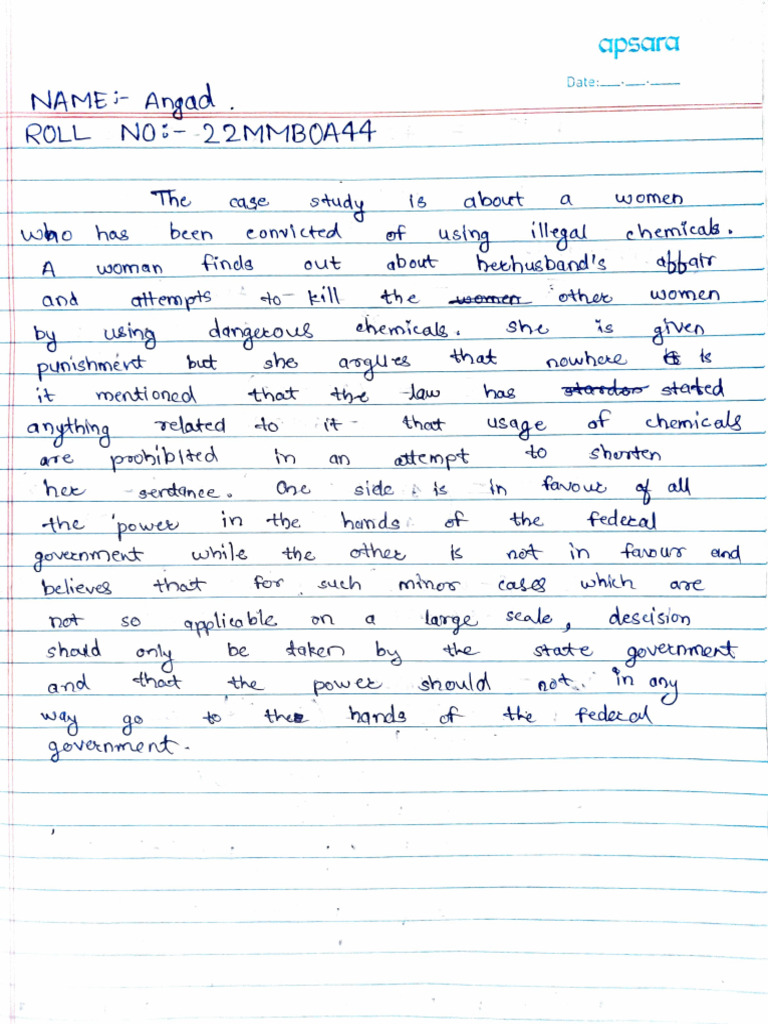 apsara
Date:__.__.__
NAME:- Angad.
ROLL NO:- 22MMB0A44
The case study is about a women
who has been convicted of using illegal chemicals.
A woman finds out about herhusband's affair
and attempts to kill the women other women
by using dangerous chemicals. She is given
punishment but she argues that nowhere is
it mentioned that the law has stated
anything related to it that usage of chemicals
are prohibited in an attempt to shorten
her sentance. One side is in favour of all
the power in the hands of the federal
government while the other is not in favour and
believes that for such minor cases which are
not so applicable on a large scale, descision
should only be taken by the state government
and that the power should not in any
way go to the hands of the federal
government.